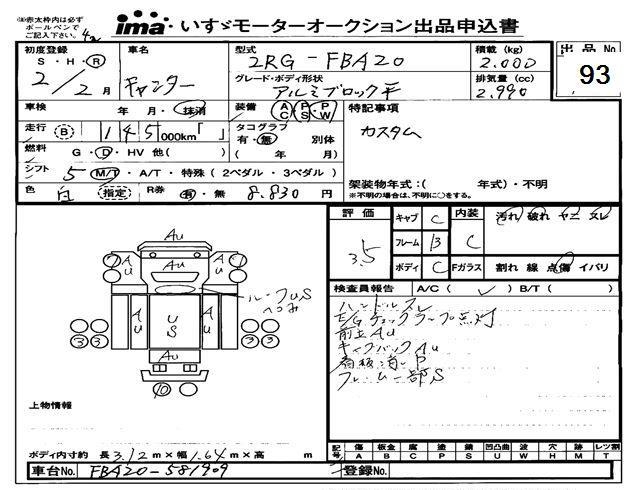 ㊟赤太枠内は必ず
ボールペンで
ご記入下さい。
ima いすゞモーターオークション出品申込書
初度登録 車名 型式 積載(kg) 出品No
S・H・R 2/2月 キャンター 2RG-FBA20 2.000 93
グレード・ボディ形状 排気量(cc)
アルミブロック平 2.990
車検 年・月・抹消 装備 AC PS PW 特記事項
走行 B 145 000km「 」 タコグラフ 別体 カスタム
有・無 (年 月)
燃料 G・D・HV 他( )
シフト 5 M/T・A/T・特殊(2ペダル・3ペダル)
架装物年式:( 年式)・不明
※不明の場合は、不明に○をする。
色 白 指定 R券 有・無 8.830円
評価 3.5 キャブ C 内装 C 汚れ 破れ ヤニ スレ
フレーム B
ボディ C Fガラス 割れ 線 点傷 イバリ
検査員報告 A/C( ✓ ) B/T( )
ハンドルスレ
E/Gチェックランプ点灯
前上AU
キャブバックAU
看板消しP
フレーム一部S
AU
AU AU
AU
ルーフUS
へコみ
AU US AU
3 3 3 3
AU
10
上物情報
ボディ内寸約 長 3.12 m×幅 1.64 m×高 m
記号 傷 板金 腐 塗 錆 凹凸曲 波 穴 跡 レツ割
A B C P S U W H M T
車台No. FBA20-581909 登録No.